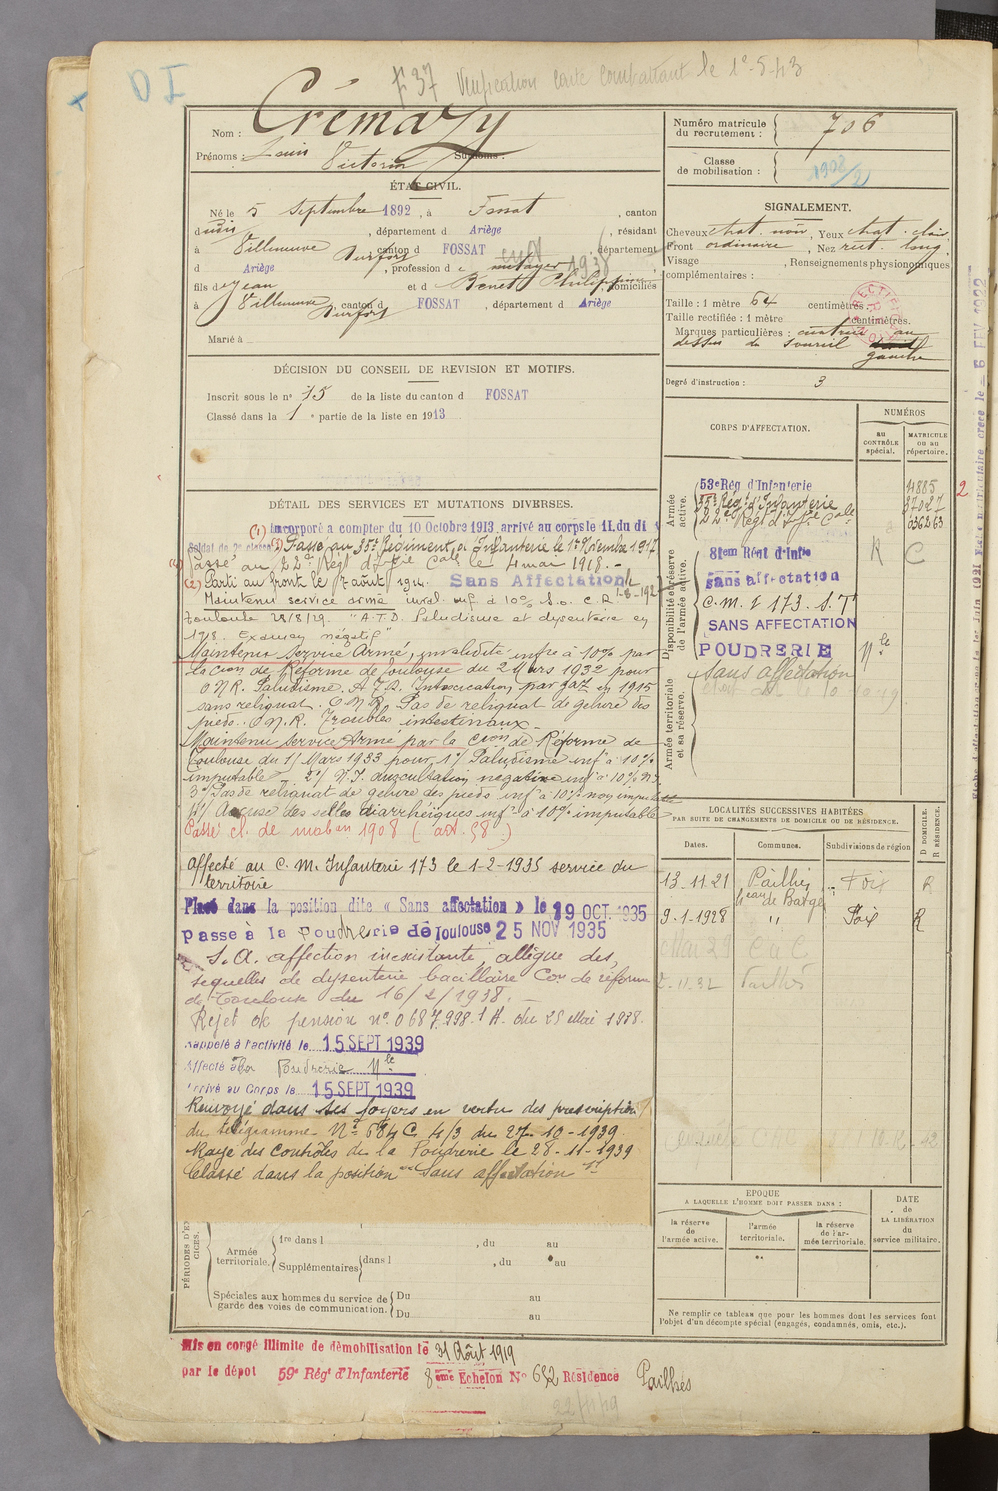 D I
F 37 Vérification carte combattant le 1º-5-43
Nom : Crémazy
Prénoms : Louis Victorin Surnoms :
ÉTAT CIVIL.
Né le 5 Septembre 1892, à Fossat, canton
dudis, département d Ariège, résidant
à Villeneuve Durfort, canton d FOSSAT, département
d Ariège, profession de métayer cult 1938
fils de Jean et d Benet Philippine, domiciliés
à Villeneuve Durfort, canton d FOSSAT, département d Ariège
Marié à
DÉCISION DU CONSEIL DE REVISION ET MOTIFS.
Inscrit sous le nº 15 de la liste du canton d FOSSAT
Classé dans la 1e partie de la liste en 1913
DÉTAIL DES SERVICES ET MUTATIONS DIVERSES.
(1) Incorporé a compter du 10 Octobre 1913, arrivé au corps le 11. du di
Soldat de 2e classe Passé au 35e Régiment d'Infanterie le 1er Novembre 1917
Passé au 22e Régt d'Ifrie Cale le 4 mai 1918.-
(2) Parti au front le 7 août 1914. Sans Affectation
Maintenu service armé inval. inf. à 10% S.O. C.R.
Toulouse 28/8/29. "A.T.D. Paludisme et dysenterie en
1918. Examen négatif"
Maintenu Service Armé, invalidité infre à 10% par
la cion de Réforme de Toulouse du 2 Mars 1932 pour
O.N.R. Paludisme. A.T.D. Intoxication par gaz en 1915
sans reliquat. O.N.R. Pas de reliquat de gelure des
pieds. O.N.R. Troubles intestinaux_
Maintenu Service Armé par la cion de Réforme de
Toulouse du 1/ Mars 1933 pour 1º/ Paludisme inf à 10%
imputable 2º/ N.I. auscultation négative inf à 10% N.I.
3º Pas de reliquat de gelure des pieds inf à 10% non imputable
4º/ Accuse des selles diarrhéiques infr à 10% imputable
Passé cl. de mob en 1908 (art. 58)
Affecté au C. M. Infanterie 173 le 1-2-1935 service du
territoire
Placé dans la position dite « Sans affectation » le 19 OCT. 1935
passe à la Poudrerie de Toulouse 25 NOV 1935
S.A. affection inexistante, allègue des
sequelles de dysenterie bacillaire Con de réforme
de Toulouse du 16/2/1938. _
Rejet de pension nº 0687.998.1 A. du 25 Mai 1938.
Rappelé à l'activité le 15 SEPT 1939
Affecté à la Poudrerie Nle
Arrivé au Corps le 15 SEPT 1939
Renvoyé dans ses foyers en vertu des prescriptions
du télégramme Nº 684 C 4/3 du 27-10-1939.
Rayé des contrôles de la Poudrerie le 28-11-1939
Classé dans la position "Sans affectation"
PÉRIODES D'EXERCICES.
Armée territoriale. 1re dans l , du au
Supplémentaires dans l , du au
Spéciales aux hommes du service de garde des voies de communication. Du au
Du au
Mis en congé illimité de démobilisation le 31 Août 1919
par le dépot 59e Régt d'Infanterie 8ème Echelon Nº 632 Résidence Pailhès
Numéro matricule du recrutement : 706
Classe de mobilisation : 1908/2
SIGNALEMENT.
Cheveux chat. noir, Yeux chat. clair
Front ordinaire, Nez rect. long
Visage , Renseignements physionomiques
complémentaires :
Taille : 1 mètre 64 centimètres.
Taille rectifiée : 1 mètre centimètres.
Marques particulières : cicatrice au
dessus du sourcil droit
gauche
Degré d'instruction : 3
CORPS D'AFFECTATION.
NUMÉROS
au CONTRÔLE spécial.
MATRICULE ou au répertoire.
Armée active.
53e Rég d'Infanterie 4885
35e Régt d'Infanterie 37027
22e Régt d'Ifie Cale 036263
Disponibilité et réserve de l'armée active.
81em Régt d'Infie R C
sans affectation
C.M. I 173. S.T
SANS AFFECTATION
POUDRERIE Nle
Armée territoriale et sa réserve.
Sans affectation
LOCALITÉS SUCCESSIVES HABITÉES
PAR SUITE DE CHANGEMENTS DE DOMICILE OU DE RÉSIDENCE.
Dates. Communes. Subdivisions de région D DOMICILE. R RÉSIDENCE.
13-11-21 Pailhès Foix R
9-1-1928 " Foix R
2-11-32 Pailhès
EPOQUE
A LAQUELLE L'HOMME DOIT PASSER DANS :
la réserve de l'armée active.
l'armée territoriale.
la réserve de l'armée territoriale.
DATE de LA LIBÉRATION du service militaire.
Ne remplir ce tableau que pour les hommes dont les services font
l'objet d'un décompte spécial (engagés, condamnés, omis, etc.).
2